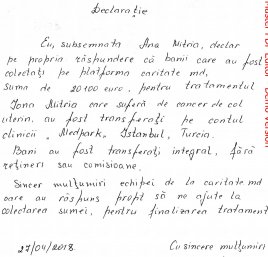 Declarație
Eu, subsemnata Ana Mitria, declar
pe propria răspundere că banii care au fost
colectați pe platforma caritate md,
suma de 20100 euro, pentru tratamentul
Iona Mitria care suferă de cancer de col
uterin, au fost transferați pe contul
clinicii „Medpark„ Istanbul, Turcia.
Bani au fost transferați integral, fără
rețineri sau comisioane.
Sincer mulțumiri echipei de la caritate md
care au răspuns propt să ne ajute la
colectarea sumei, pentru finalizarea tratament
27/04/2018
Cu sincere mulțumiri